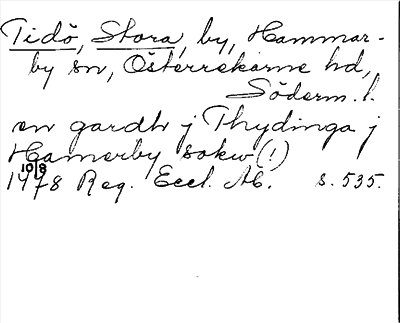 Tidö, Stora, by, Hammar-
by sn, Österrekarne hd,
Söderm. l.
en gardh j Thydinga j
Hamerby sokw (!)
10/8
1478 Reg. Eccl. M. s. 535.